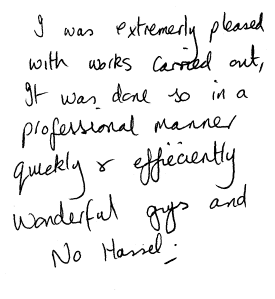 I was extremerly pleased
with works carried out,
It was done so in a
professional manner
quickly & effieciently
Wonderful guys and
No Hassel.